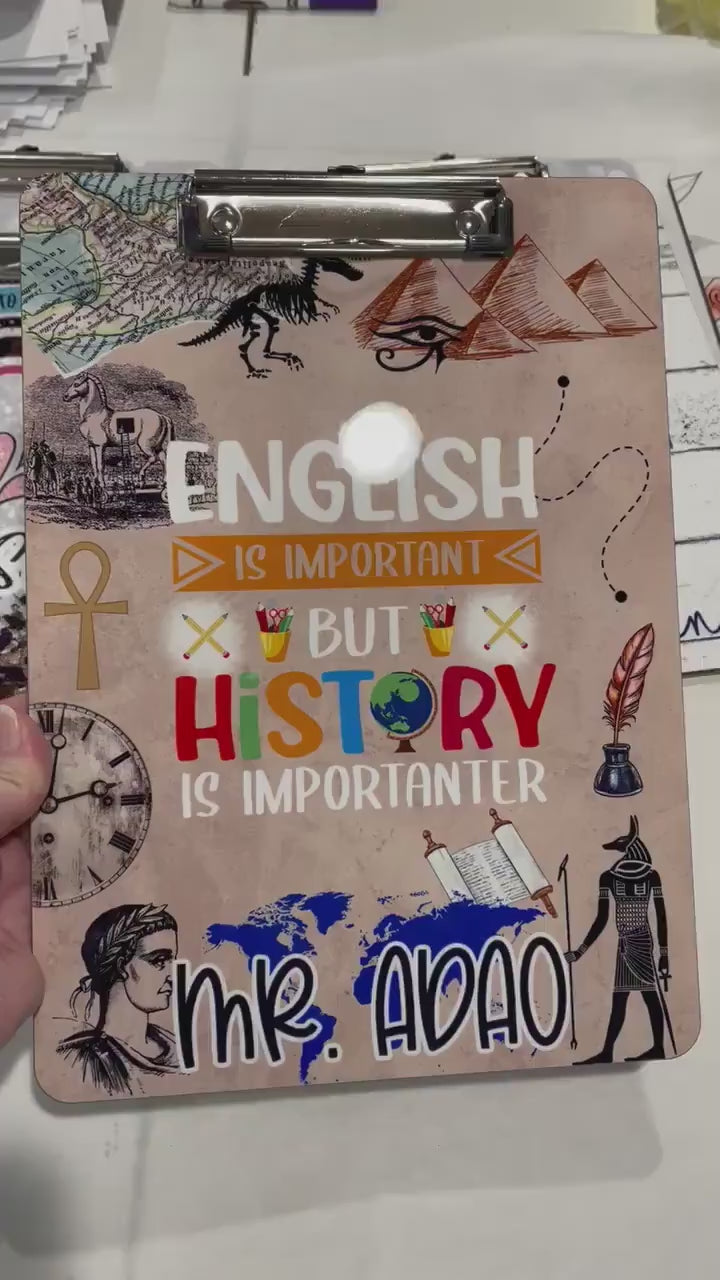 ENGLISH
IS IMPORTANT
BUT
HiSTORY
IS IMPORTANTER
MR. ADAO